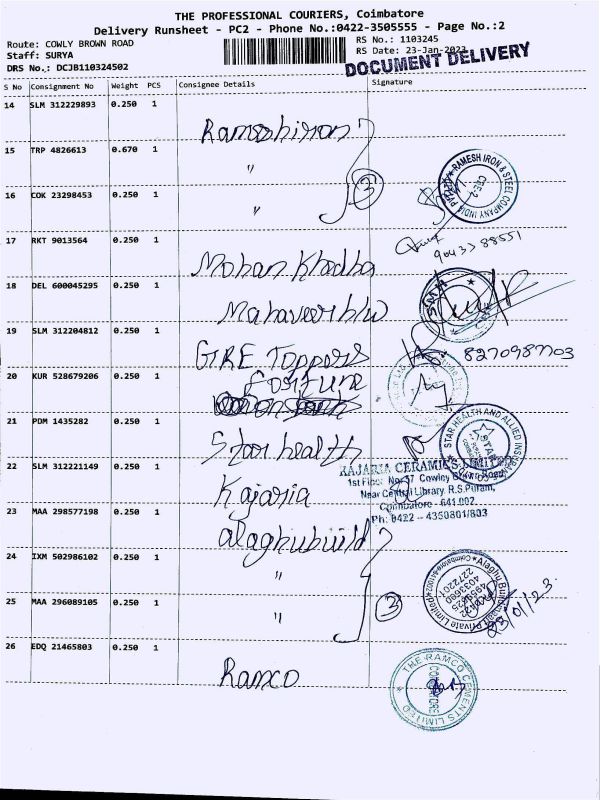 THE PROFESSIONAL COURIERS, Coimbatore
Delivery Runsheet - PC2 - Phone No.:0422-3505555 - Page No.:2
Route: COWLY BROWN ROAD
RS No.: 1103245
Staff: SURYA
RS Date: 23-Jan-2023
DRS No.: DCJB110324502
DOCUMENT DELIVERY
S No Consignment No Weight PCS Consignee Details Signature
14 SLM 312229893 0.250 1
15 TRP 4826613 0.670 1 "
RAMESH IRON & STEEL COMPANY INDIA
CBE-2
16 COK 23298453 0.250 1 "
3
17 RKT 9013564 0.250 1 Mohan
90433 88551
18 DEL 600045295 0.250 1 Mahaveer h/w
SMH
19 SLM 312204812 0.250 1 GTRE Toppers
20 KUR 528679206 0.250 1 fortune
21 PDM 1435282 0.250 1 Star health
STAR HEALTH AND ALLIED INSURANCE
STAR
22 SLM 312221149 0.250 1 Kajaria
KAJARIA CERAMICS LIMITED
1st Floor No. 37 Cowley Brown Road
Near Central Library R.S.Puram,
Coimbatore - 641 002.
Ph: 0422 - 4350801/803
23 MAA 298577198 0.250 1 alaghubuild
24 IXM 502986102 0.250 1 "
Alaghu Buildmart Private Limited
25 MAA 296089105 0.250 1 "
3
23/01/23
26 EDQ 21465803 0.250 1 Ramco
THE RAMCO CEMENTS LIMITED
COIMBATORE